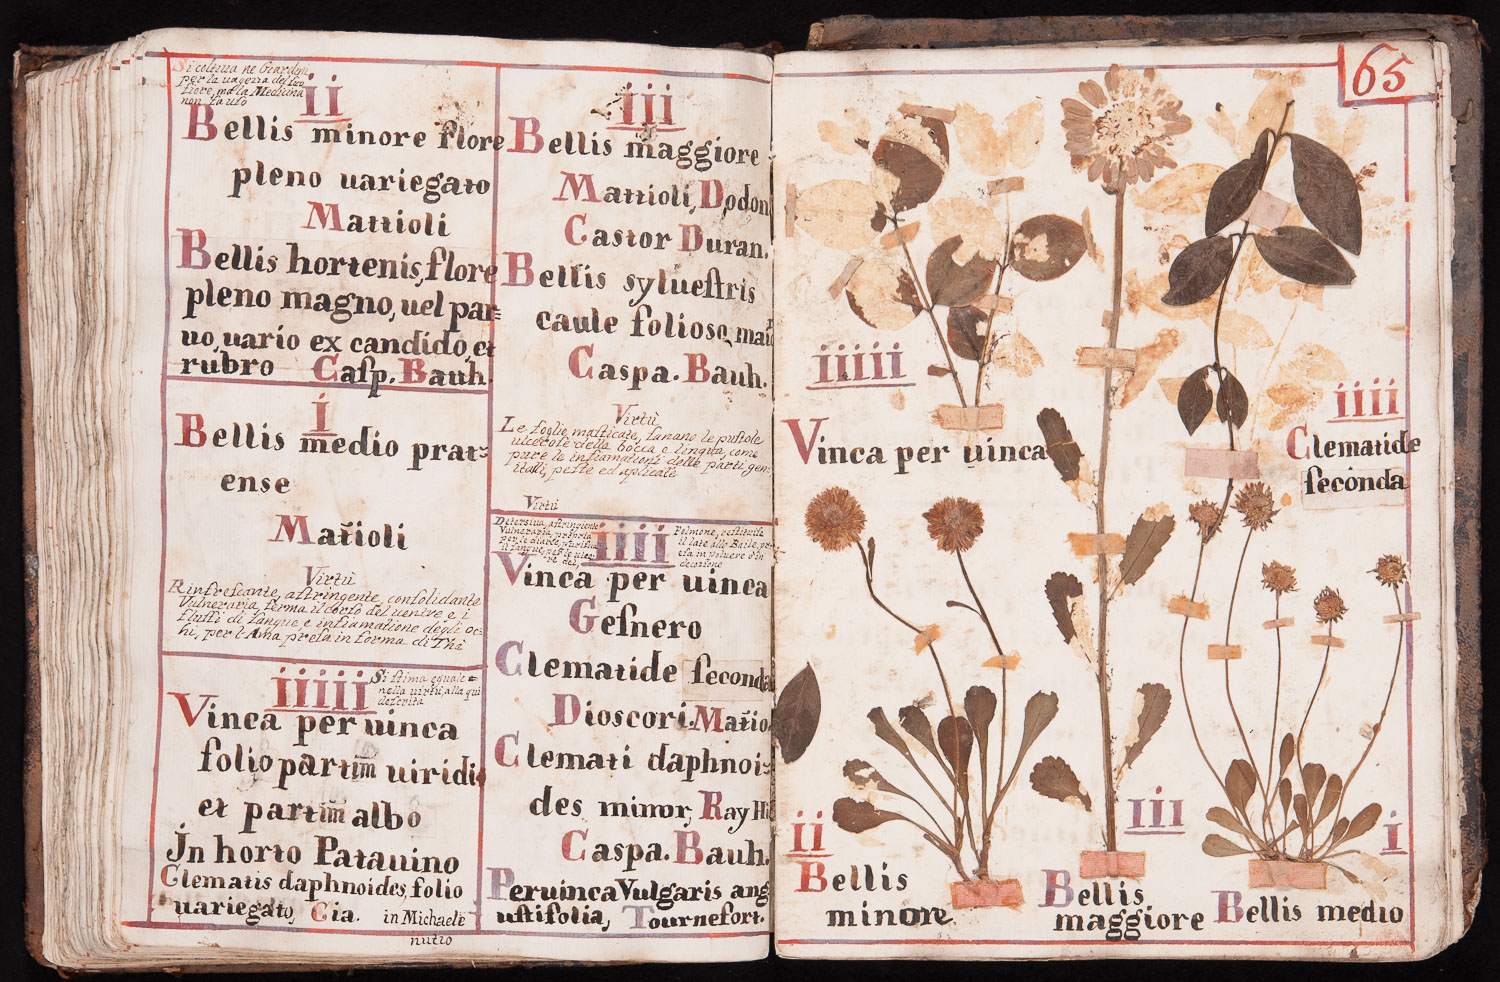 Si coltiua ne Giardini
per la uagezza del suo
fiore, ma la Medicina
non fa uso
ii
Bellis minore flore
pleno uariegato
Mattioli
Bellis hortenis, flore
pleno magno, uel par=
uo, uario ex candido, et
rubro Casp. Bauh.
i
Bellis medio prat=
ense
Matioli
Virtù
Rinfrescante, astringente, consolidante
Vulneraria, ferma il corso del uentre e i
flussi di sangue e infiamatione degli oc=
hi, per l'Asma presa in forma di Thè
iiiii
Si stima eguale
nella uirtù, alla qui
descrita
Vinca per uinca
folio partim uiridi
et partim albo
Jn horto Patauino
Clematis daphnoides, folio
uariegato, Cia. in Michaele
nutio
iii
Bellis maggiore
Mattioli, Dodon
Castor Duran.
Bellis syluestris
caule folioso, mai
Caspa. Bauh.
Virtù
Le foglie masticate, sanano le pustole
ulcerose della bocca e lingua, come
pure le infiamationi delle parti gen=
itali, peste ed aplicate
Virtù
Detersiua, astringente
Vulneraria, propria
per le diaree, purifica
il sangue, per le ulce=
re del,
Polmone, restituisse
il late alle Balie, pre
sa in poluere o in
decotione
iiii
Vinca per uinca
Gesnero
Clematide seconda
Dioscori. Matio
Clemati daphnoi=
des minor, Ray Hi
Caspa. Bauh.
Peruinca Vulgaris ang
ustifolia, Tournefort.
65
iiiii
Vinca per uinca
iiii
Clematide
seconda
ii
Bellis
minore
iii
Bellis
maggiore
i
Bellis medio